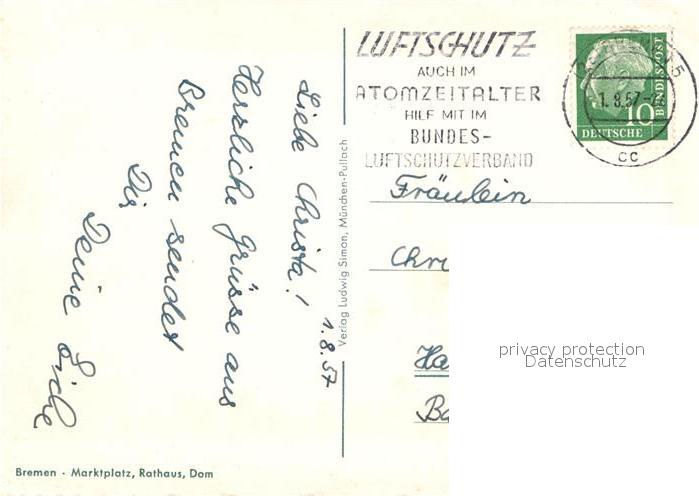 LUFTSCHUTZ
AUCH IM
ATOMZEITALTER
HILF MIT IM
BUNDES-
LUFTSCHUTZVERBAND
1.8.57
cc
10
DEUTSCHE
BUNDESPOST
1.8.57
Liebe Christa!
Herzliche Grüsse aus
Bremen sendet
Dir
Deine
Verlag Ludwig Simon, München-Pullach
Fräulein
Chri
Ha
Ba
privacy protection
Datenschutz
Bremen · Marktplatz, Rathaus, Dom